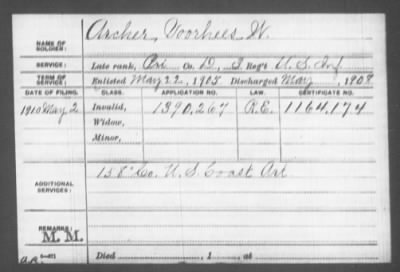 NAME OF SOLDIER: Archer, Voorhees W.
SERVICE: Late rank, Pri Co. D, 5 Reg't U.S. Inf
TERM OF SERVICE: Enlisted May 22, 1905 Discharged May, 1908
DATE OF FILING. CLASS. APPLICATION NO. LAW. CERTIFICATE NO.
1910 May 2 Invalid, 1390,267 R.E. 1164,174
Widow,
Minor,
ADDITIONAL SERVICES: 158" Co. U.S. Coast Art
REMARKS:
M. M.
Died , 1 , at